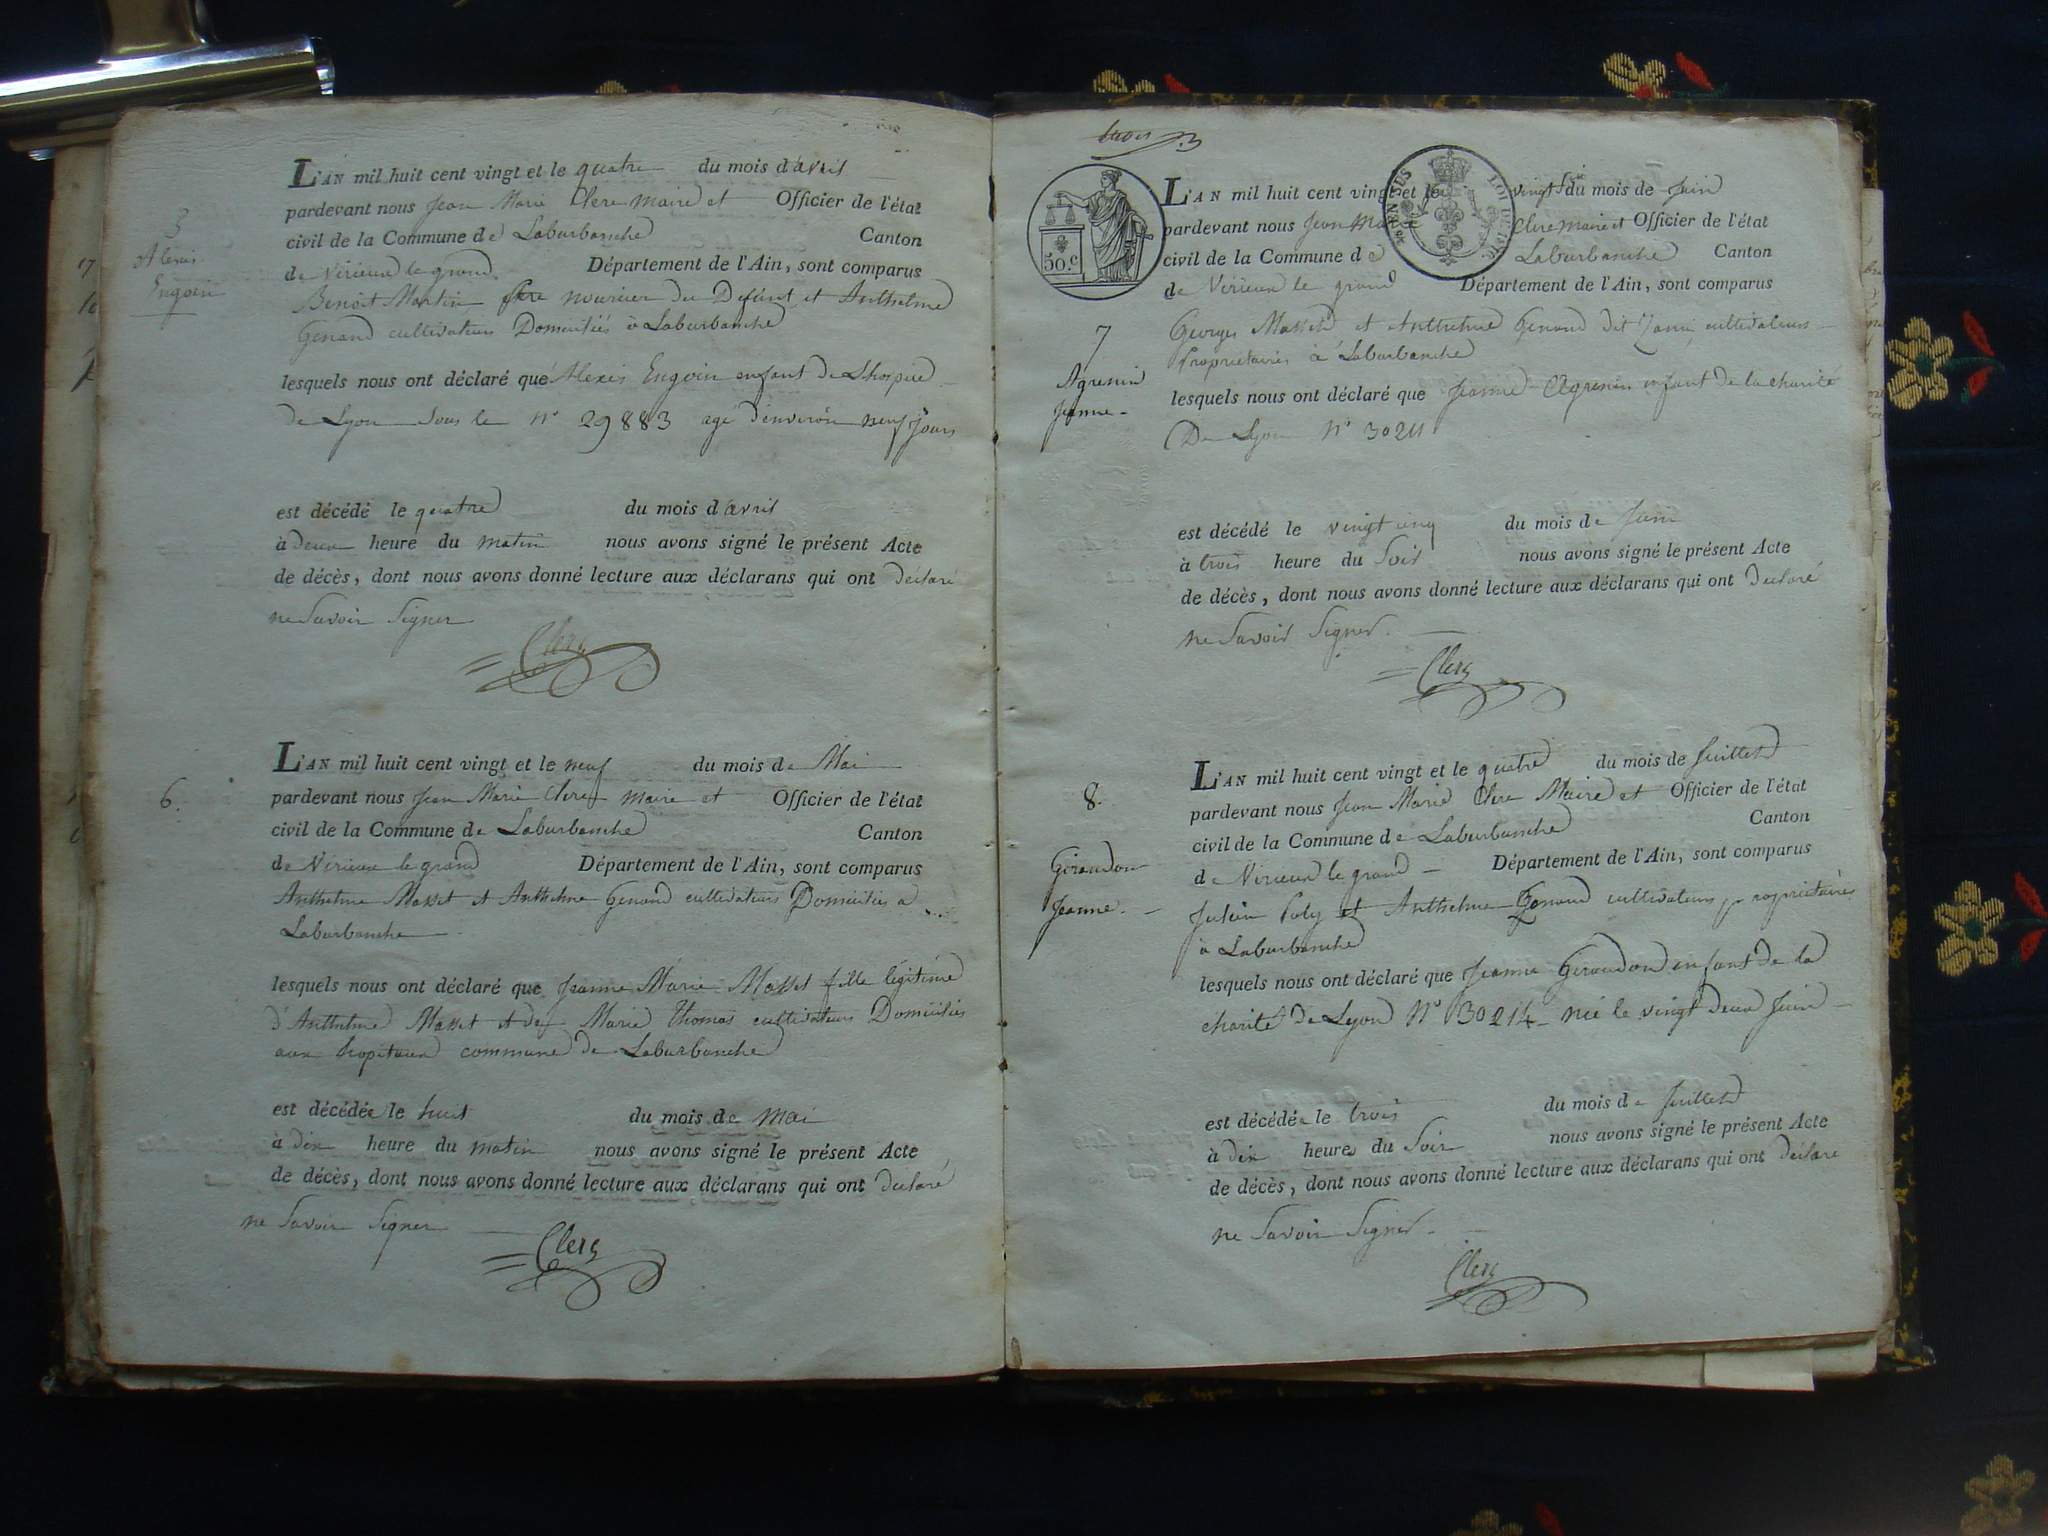 5
Alexis
Engoin
L'AN mil huit cent vingt et le quatre du mois d'avril
pardevant nous Jean Marie Clerc maire et Officier de l'état
civil de la Commune de Laburbanche Canton
de Virieux le grand Département de l'Ain, sont comparus
Benoit Martin père nouricier du Defunt et Anthelme
Genand cultivateurs Domiciliés à Laburbanche
lesquels nous ont déclaré que Alexis Engoin enfant de Lhospice
de Lyon sous le n° 29883 agé d'environ neuf jours
est décédé le quatre du mois d'avril
à deux heure du matin nous avons signé le présent Acte
de décès, dont nous avons donné lecture aux déclarans qui ont déclaré
ne Savoir Signer
Clerc
6.
L'AN mil huit cent vingt et le neuf du mois de Mai
pardevant nous Jean Marie Clerc maire et Officier de l'état
civil de la Commune de Laburbanche Canton
de Virieux le grand Département de l'Ain, sont comparus
Anthelme Masset et Anthelme Genand cultivateurs Domiciliés a
Laburbanche
lesquels nous ont déclaré que Jeanne Marie Masset fille légitime
d'Anthelme Masset et de Marie Thomas cultivateurs Domiciliés
aux hopitaux commune de Laburbanche
est décédée le huit du mois de Mai
à dix heure du matin nous avons signé le présent Acte
de décès, dont nous avons donné lecture aux déclarans qui ont déclaré
ne Savoir Signer
Clerc
trois 3
50.c
LOI DE 1816
7
Agrenin
Jeanne
L'AN mil huit cent vingt et le vingt six du mois de Juin
pardevant nous Jean Ma Clerc maire et Officier de l'état
civil de la Commune de Laburbanche Canton
de Virieux le grand Département de l'Ain, sont comparus
Georges Masset et Anthelme Genand dit cultivateurs
Propriétaires à Laburbanche
lesquels nous ont déclaré que Jeanne Agrenin enfant de la charité
De Lyon N° 30211
est décédé le vingt cinq du mois de Juin
à trois heure du Soir nous avons signé le présent Acte
de décès, dont nous avons donné lecture aux déclarans qui ont declaré
ne Savoir Signer.
Clerc
8.
Giraudon
Jeanne.
L'AN mil huit cent vingt et le quatre du mois de Juillet
pardevant nous Jean Marie Clerc Maire et Officier de l'état
civil de la Commune de Laburbanche Canton
de Virieux le grand Département de l'Ain, sont comparus
Julien Poly et Anthelme Genand cultivateurs propriétaires
à Laburbanche
lesquels nous ont déclaré que Jeanne Giraudon enfant de la
charité de Lyon N° 30214 née le vingt deux Juin
est décédée le trois du mois de Juillet
à dix heures du Soir nous avons signé le présent Acte
de décès, dont nous avons donné lecture aux déclarans qui ont déclaré
ne Savoir Signer.
Clerc